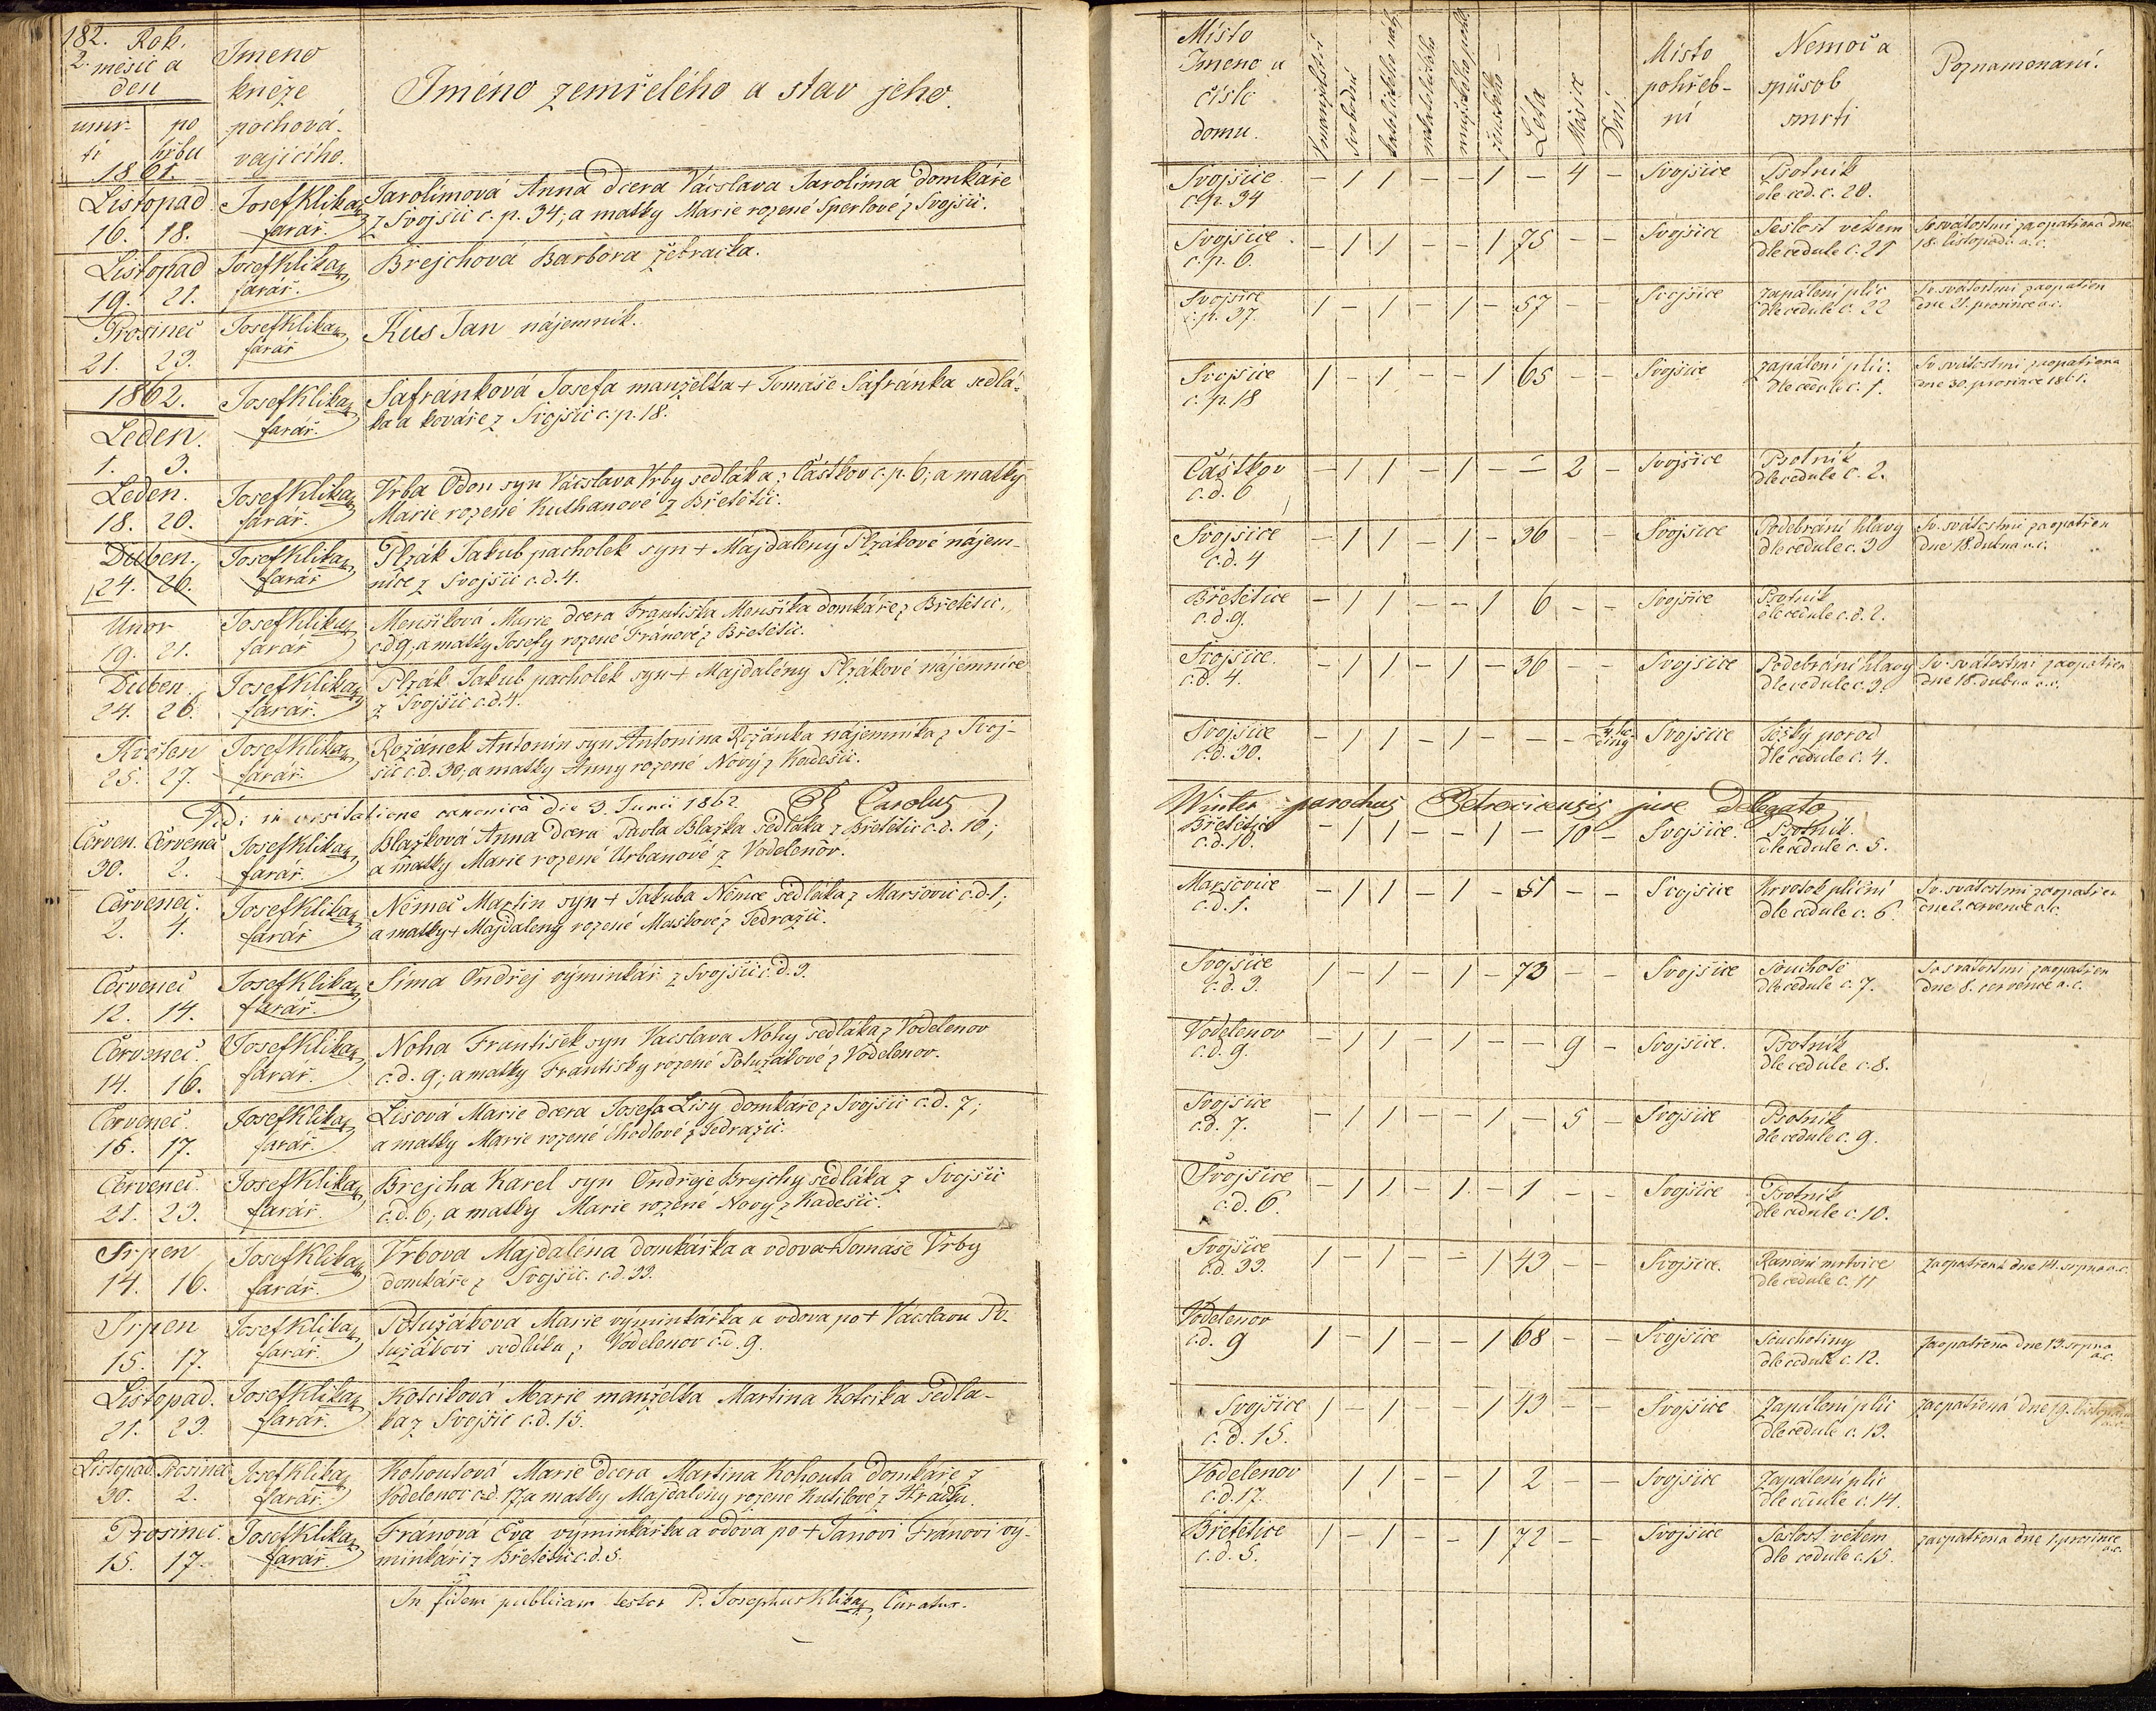 182.
2.
Rok.
měsíc a
den
úmr-
tí
po
hřbu
Jmeno
kněze
pochová-
vajícího.
Jméno zemřelého a stav jeho.
1861.
Listopad
16. 18.
Josef Klika
farář.
Jarolímová Anna dcera Václava Jarolíma domkáře
z Svojšic c. p. 34; a matky Marie rozené Sperlové z Svojšic.
Listopad
19. 21.
Josef Klika
farář.
Brejchová Barbora žebračka.
Prosinec
21. 23.
Josef Klika
farář
Kus Jan nájemník.
1862.
Leden.
1. 3.
Josef Klika
farář.
Šafránková Josefa manželka + Tomáše Šafránka sedlá-
ka a kováře z Svojšic c. p. 18.
Leden.
18. 20.
Josef Klika
farář.
Vrba Odon syn Václava Vrby sedláka z Částkov c. p. 6; a matky
Marie rozené Kuthanové z Břetětic.
Duben.
24. 26.
Josef Klika
farář
Plzák Jakub pacholek syn + Majdaleny Plzákové nájem-
nice z Svojšic c. d. 4.
Unor
19. 21.
Josef Klika
farář
Menšíková Marie dcera Františka Menšíka domkáře z Břetětic
c. d. 9; a matky Josefy rozené Fránové z Břetětic.
Duben
24. 26.
Josef Klika
farář.
Plzák Jakub pacholek syn + Majdalény Plzákové nájemnice
z Svojšic c. d. 4.
Květen
25. 27.
Josef Klika
farář.
Rožánek Antonín syn Antonína Rožánka nájemníka z Svoj-
šic c. d. 30; a matky Anny rozené Nový z Kadešic.
Vidi in visitatione canonica die 3. Junii 1862. Carolus
Červen. Červenec
30. 2.
Josef Klika
farář.
Blažková Anna dcera Pavla Blažka sedláka z Břetětic c. d. 10;
a matky Marie rozené Urbanové z Vodelenov.
Červenec.
2. 4.
Josef Klika
farář
Němec Martin syn + Jakuba Němce sedláka z Maršovic c. d. 1;
a matky + Majdaleny rozené Maškové z Tedražic.
Červenec
12. 14.
Josef Klika
farář.
Síma Ondřej výminkář z Svojšic c. d. 3.
Červenec.
14. 16.
Josef Klika
farář.
Noha František syn Vácslava Nohy sedláka z Vodelenov
c. d. 9; a matky Františky rozené Potužákové z Vodelenov.
Červenec.
15. 17.
Josef Klika
farář.
Lisová Marie dcera Josefa Lisy domkáře z Svojšic c. d. 7;
a matky Marie rozené Chodlové z Tedražic.
Červenec.
21. 23.
Josef Klika
farář.
Brejcha Karel syn Ondřeje Brejchy sedláka z Svojšic
c. d. 6; a matky Marie rozené Nový z Kadešic.
Srpen
14. 16.
Josef Klika
farář.
Vrbova Majdaléna domkářka a vdova + Tomáše Vrby
domkáře z Svojšic. c. d. 33.
Srpen
15. 17.
Josef Klika
farář.
Potužákova Marie výminkářka a vdova po + Vácslavu Po-
tužákovi sedláku z Vodelenov c. d. 9.
Listopad.
21. 23.
Josef Klika
farář.
Kotesková Marie manželka Martina Koteska sedlá-
ka z Svojšic c. d. 15.
Listopad. Prosinec
30. 2.
Josef Klika
farář.
Kohoutová Marie dcera Martina Kohouta domkáře z
Vodelenov c. d. 17, a matky Majdaleny rozené Kutilové z Hrádku.
Prosinec.
15. 17.
Josef Klika
farář.
Fránová Eva výminkářka a vdova po + Janovi Fránovi vý-
minkáři z Břetětic c. d. 5.
In fidem publicam testor P. Josephus Klika, Curatus.
Místo
Jmeno a
číslo
domu.
V manželství
svobodní
katolického náb.
nekatolického
mužského pohl.
ženského
Léta
Měsíce
Dni
Místo
pohřeb-
ní
Nemoc a
způsob
smrti
Poznamenání.
Svojšice
c. p. 34
– 1 1 – – 1 – 4 –
Svojšice
Psotník
dle ced. c. 20.
Svojšice
c. p. 6.
– 1 1 – – 1 75 – –
Svojšice
Sešlost věkem
dle cedule c. 21
Sv. svátostmi zaopatřena dne
18. listopadu a. c.
Svojšice
c. p. 37.
1 – 1 – 1 – 57 – –
Svojšice
Zapálení plic
dle cedule c. 22
Sv. svátostmi zaopatřen
dne 21. prosince a. c.
Svojšice
c. p. 18
1 – 1 – – 1 65 – –
Svojšice
Zapálení plic.
dle cedule c. 1.
Sv. svátostmi zaopatřena
dne 30. prosince 1861.
Částkov
c. d. 6
– 1 1 – 1 – – 2 –
Svojšice
Psotník
dle cedule c. 2.
Svojšice
c. d. 4
– 1 1 – 1 – 36 – –
Svojšice
Podebrání hlavy
dle cedule c. 3
Sv. svátostmi zaopatřen
dne 18. dubna a. c.
Břetětice
c. d. 9.
– 1 1 – – 1 6 – –
Svojšice
Psotník
dle cedule c. d. 2.
Svojšice.
c. d. 4.
– 1 1 – 1 – 36 – –
Svojšice
Podebrání hlavy
dle cedule c. 3.
Sv. svátostmi zaopatřen
dne 18. dubna a. c.
Svojšice
c. d. 30.
– 1 1 – 1 – – –
Svojšice
Těžký porod
dle cedule c. 4.
Winter parochus Petrovicensis jure Delegato
Břetětic
c. d. 10.
– 1 1 – – 1 – 10 –
Svojšice.
Psotník.
dle cedule c. 5.
Maršovice
c. d. 1.
– 1 1 – 1 – 51 – –
Svojšice
Krvotok plicní
dle cedule c. 6.
Sv. svátostmi zaopatřen
dne 2. července a. c.
Svojšice
c. d. 3.
1 – 1 – 1 – 73 – –
Svojšice
Souchotě
dle cedule c. 7.
Sv. svátostmi zaopatřen
dne 8. července a. c.
Vodelenov
c. d. 9.
– 1 1 – 1 – – 9 –
Svojšice.
Psotník
dle cedule c. 8.
Svojšice
c. d. 7.
– 1 1 – – 1 – 5 –
Svojšice
Psotník
dle cedule c. 9.
Svojšice
c. d. 6.
– 1 1 – 1 – 1 – –
Svojšice
Psotník
dle cedule c. 10.
Svojšice
c. d. 33.
1 – 1 – – 1 43 – –
Svojšice.
Ranění mrtvice
dle cedule c. 11
Zaopatřena dne 14. srpna a. c.
Vodelenov
c. d. 9
1 – 1 – – 1 68 – –
Svojšice
Souchotiny
dle cedule c. 12.
Zaopatřena dne 13. srpna
a. c.
Svojšice
c. d. 15.
1 – 1 – – 1 43 – –
Svojšice
Zapálení plic
dle cedule c. 13.
Zaopatřená dne 19. listopadu
a. c.
Vodelenov
c. d. 17.
– 1 1 – – 1 2 – –
Svojšice
Zapálení plic
dle cedule c. 14.
Břetětice
c. d. 5.
1 – 1 – – 1 72 – –
Svojšice
Sešlost věkem
dle cedule c. 15.
zaopatřena dne 1. prosince
a. c.